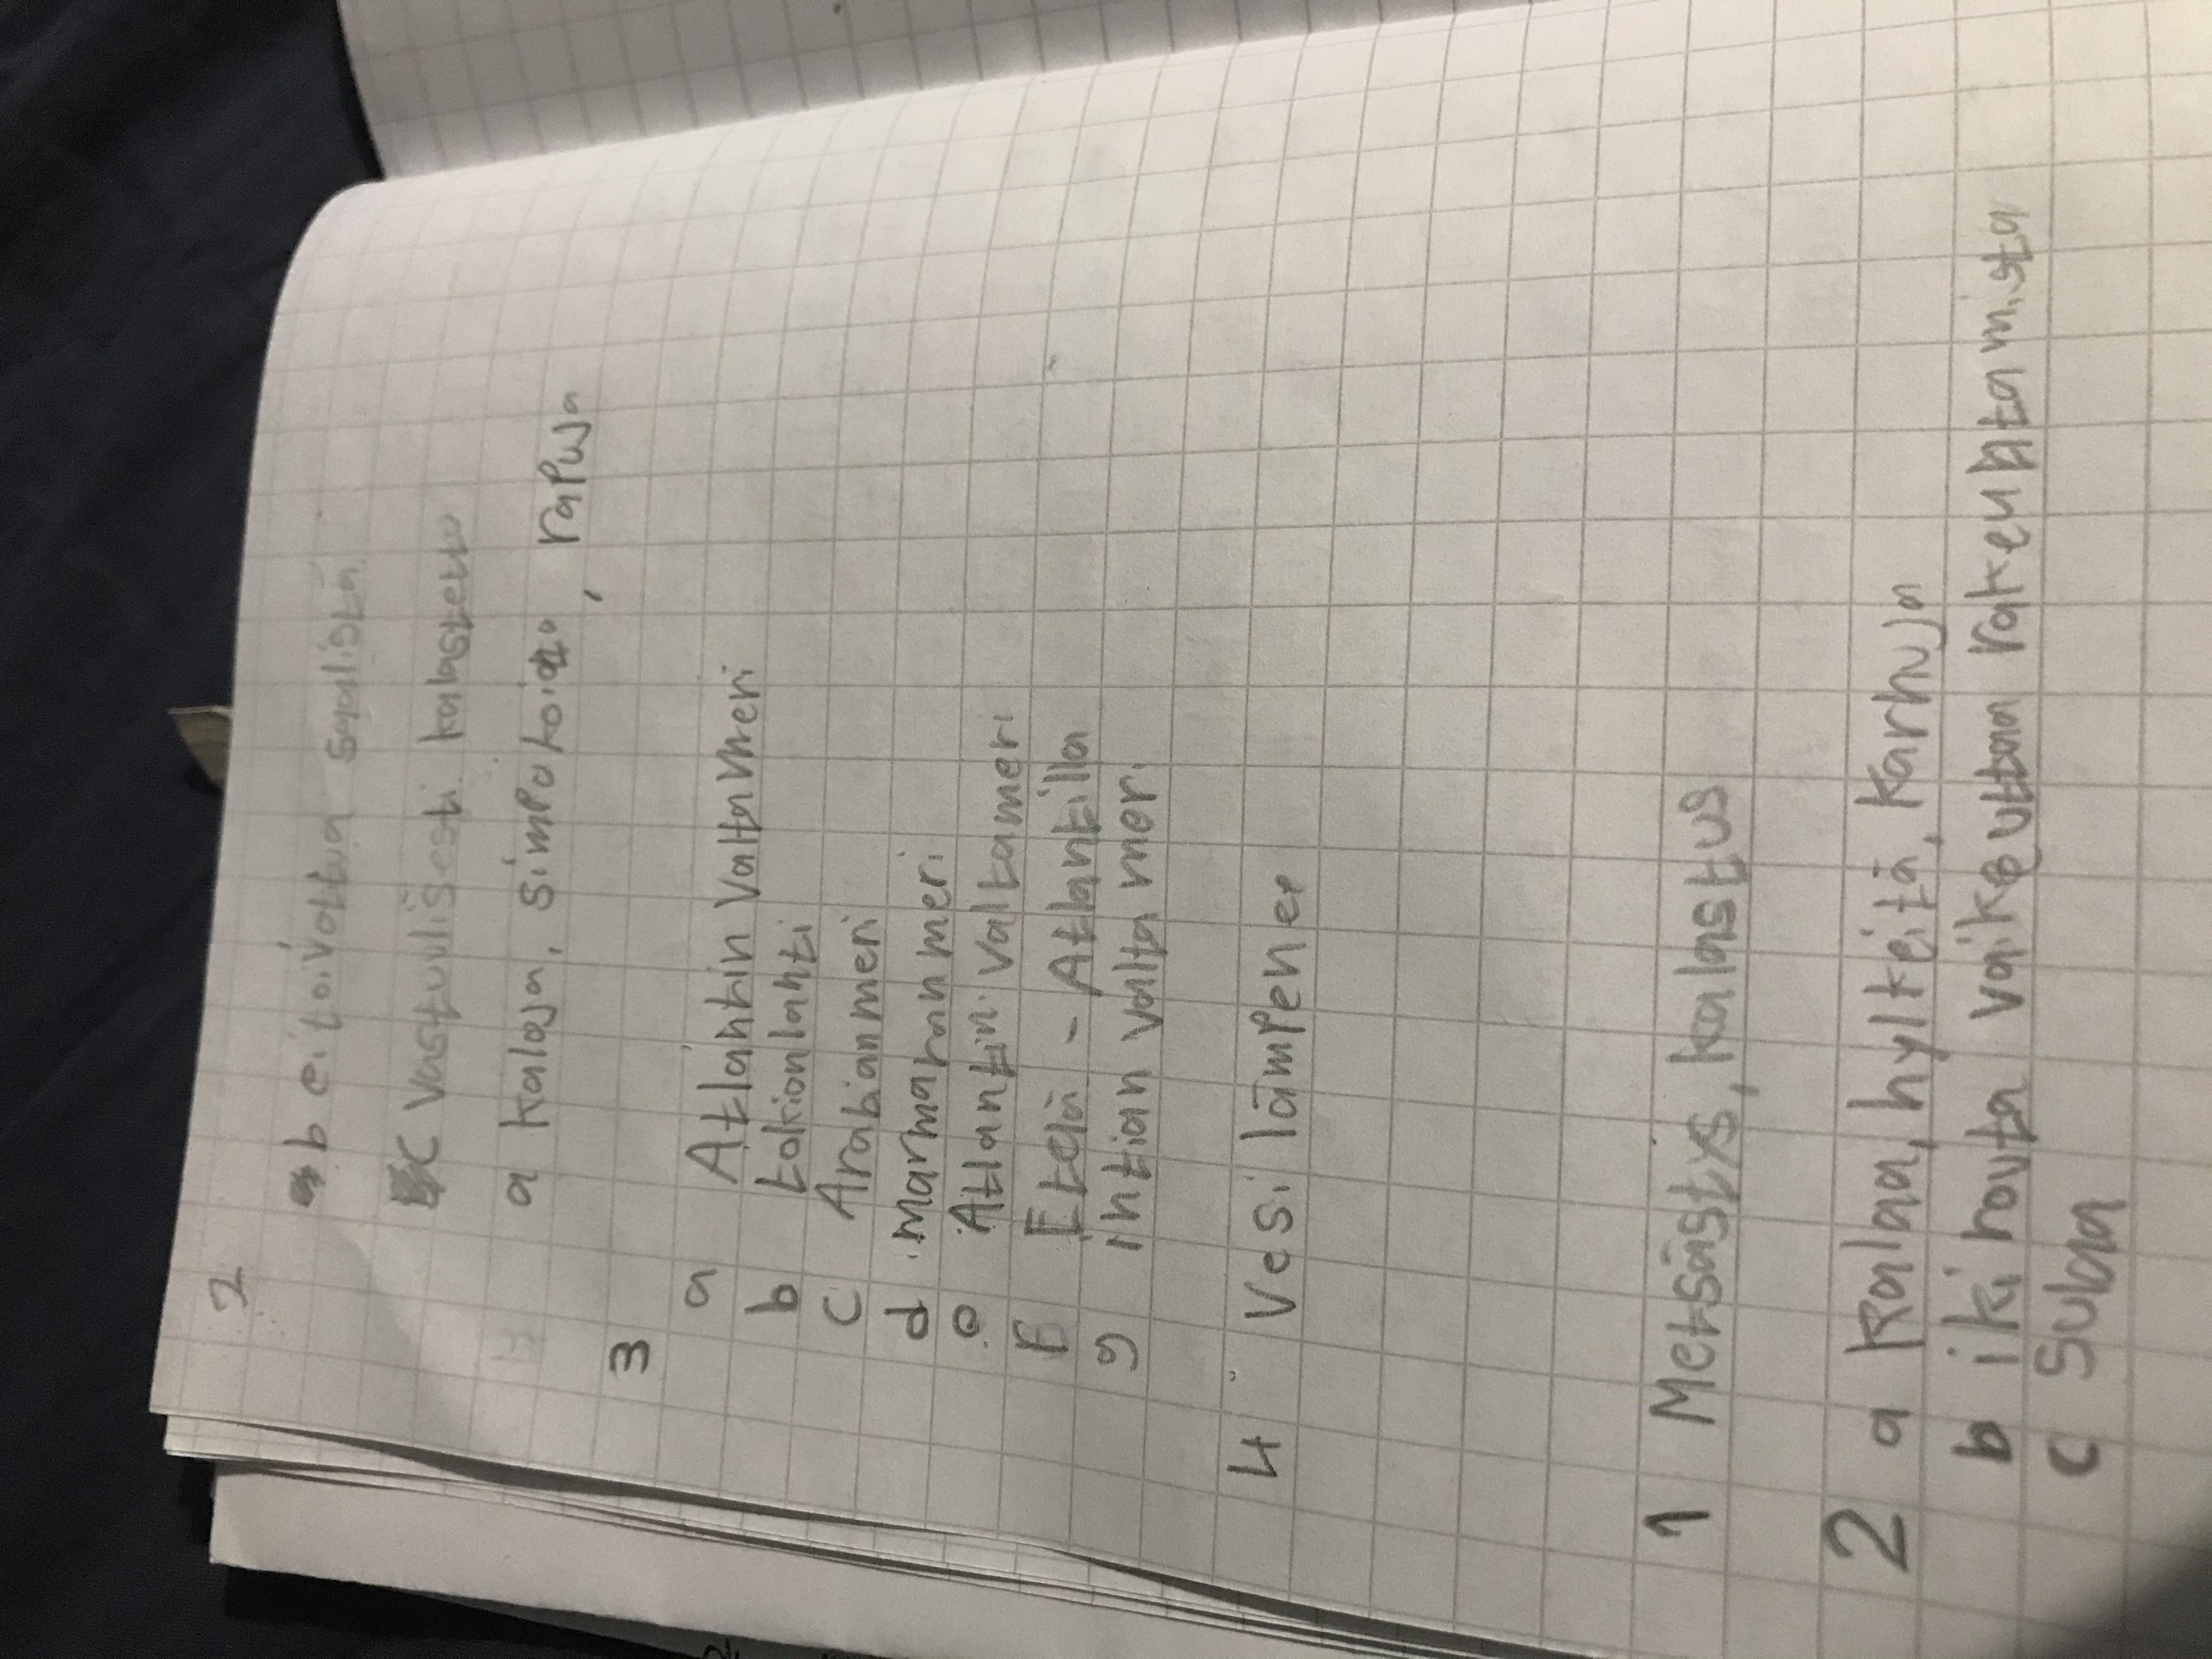 2
b ei toivottua saalista
C vastuullisesti kalastettu
a kaloja, simpukoita, rapuja
3
a Atlantin Valtanmeri
b tokionlahti
C Arabianmeri
d marmaranmeri
e Atlantin valtameri
F Etelä - Atlantilla
g intian valtameri
4 Vesi lämpenee
1 Metsästys, kalastus
2
a Kalaa, hylkeitä, karhuja
b ikirouta vaikeuttaa rakenhtamista
c Sulaa